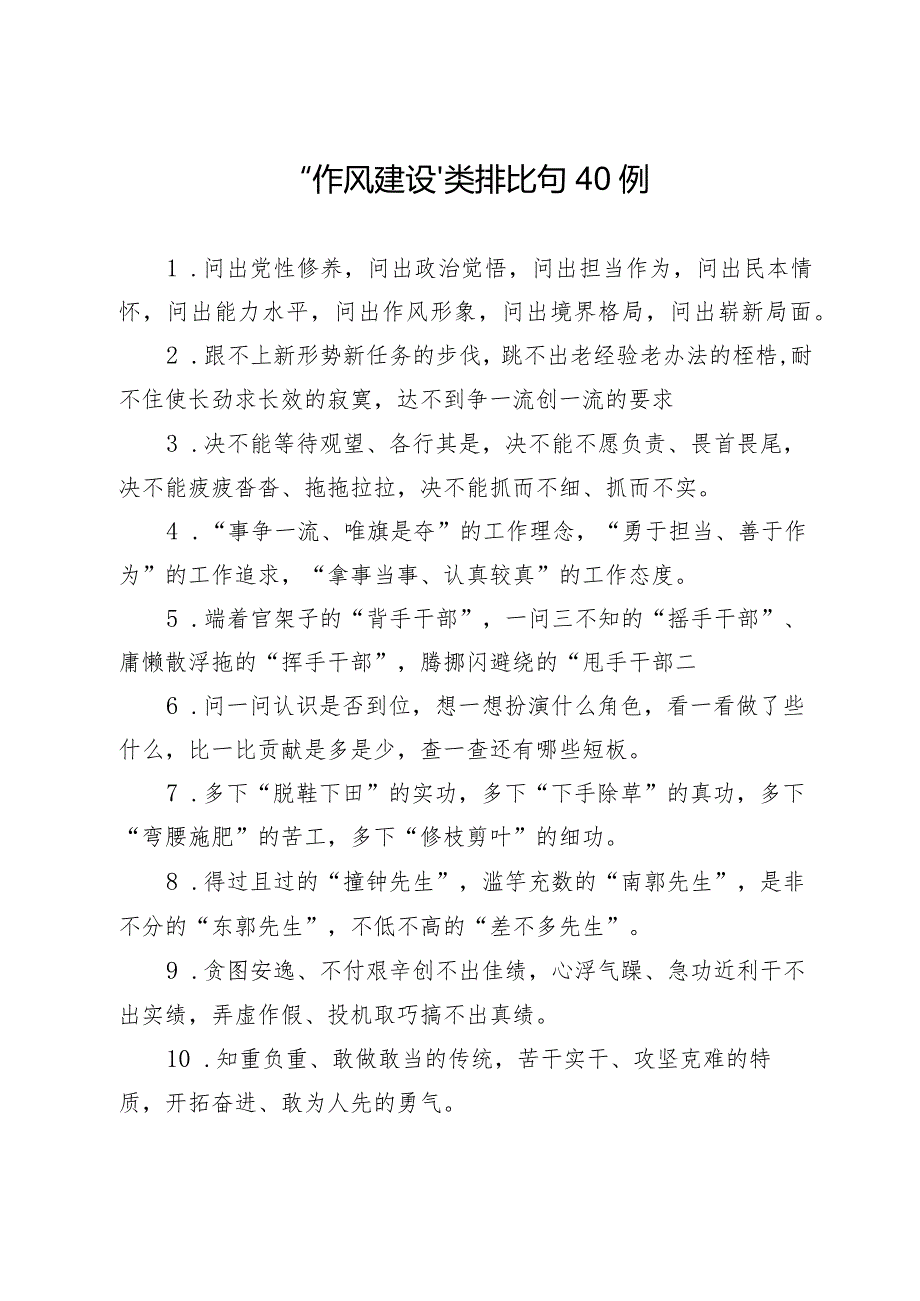 “作风建设'类排比句 40 例
1 .问出党性修养，问出政治觉悟，问出担当作为，问出民本情
怀，问出能力水平，问出作风形象，问出境界格局，问出崭新局面。
2 .跟不上新形势新任务的步伐，跳不出老经验老办法的桎梏,耐
不住使长劲求长效的寂寞，达不到争一流创一流的要求
3 .决不能等待观望、各行其是，决不能不愿负责、畏首畏尾，
决不能疲疲沓沓、拖拖拉拉，决不能抓而不细、抓而不实。
4 .“事争一流、唯旗是夺”的工作理念，“勇于担当、善于作
为”的工作追求，“拿事当事、认真较真”的工作态度。
5 .端着官架子的“背手干部”，一问三不知的“摇手干部”、
庸懒散浮拖的“挥手干部”，腾挪闪避绕的“甩手干部二
6 .问一问认识是否到位，想一想扮演什么角色，看一看做了些
什么，比一比贡献是多是少，查一查还有哪些短板。
7 .多下“脱鞋下田”的实功，多下“下手除草”的真功，多下
“弯腰施肥”的苦工，多下“修枝剪叶”的细功。
8 .得过且过的“撞钟先生”，滥竽充数的“南郭先生”，是非
不分的“东郭先生”，不低不高的“差不多先生”。
9 .贪图安逸、不付艰辛创不出佳绩，心浮气躁、急功近利干不
出实绩，弄虚作假、投机取巧搞不出真绩。
10 .知重负重、敢做敢当的传统，苦干实干、攻坚克难的特
质，开拓奋进、敢为人先的勇气。